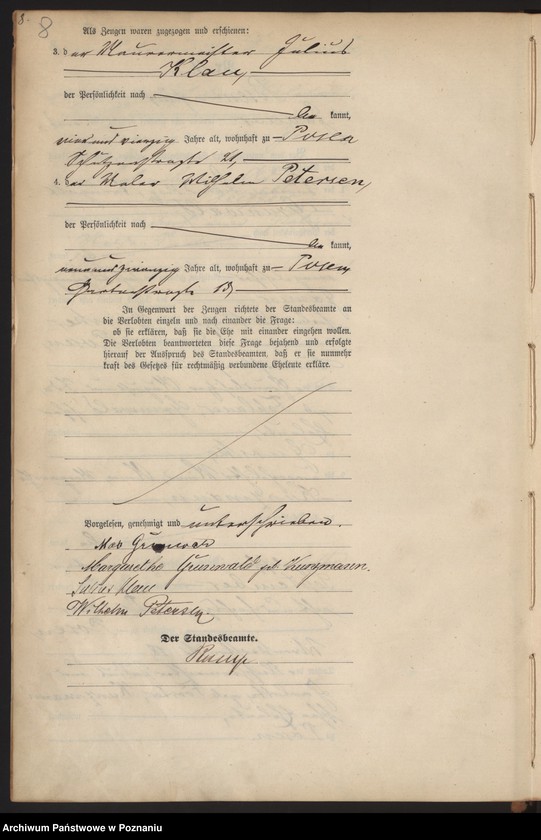 8. 8
Als Zeugen waren zugezogen und erschienen:
3. der Maurermeister Julius
Klau,
der Persönlichkeit nach
be kannt,
vierundvierzig Jahre alt, wohnhaft zu Posen
Schützenstraße 21,
4. der Maler Wilhelm Petersen,
der Persönlichkeit nach
be kannt,
neunundzwanzig Jahre alt, wohnhaft zu Posen
In Gegenwart der Zeugen richtete der Standesbeamte an
die Verlobten einzeln und nach einander die Frage:
ob sie erklären, daß sie die Ehe mit einander eingehen wollen.
Die Verlobten beantworteten diese Frage bejahend und erfolgte
hierauf der Ausspruch des Standesbeamten, daß er sie nunmehr
kraft des Gesetzes für rechtmäßig verbundene Eheleute erkläre.
Vorgelesen, genehmigt und unterschrieben.
Max Grunwald
Margarethe Grunwald geb. Kurzmann.
Julius Klau
Wilhelm Petersen
Der Standesbeamte.
Archiwum Państwowe w Poznaniu